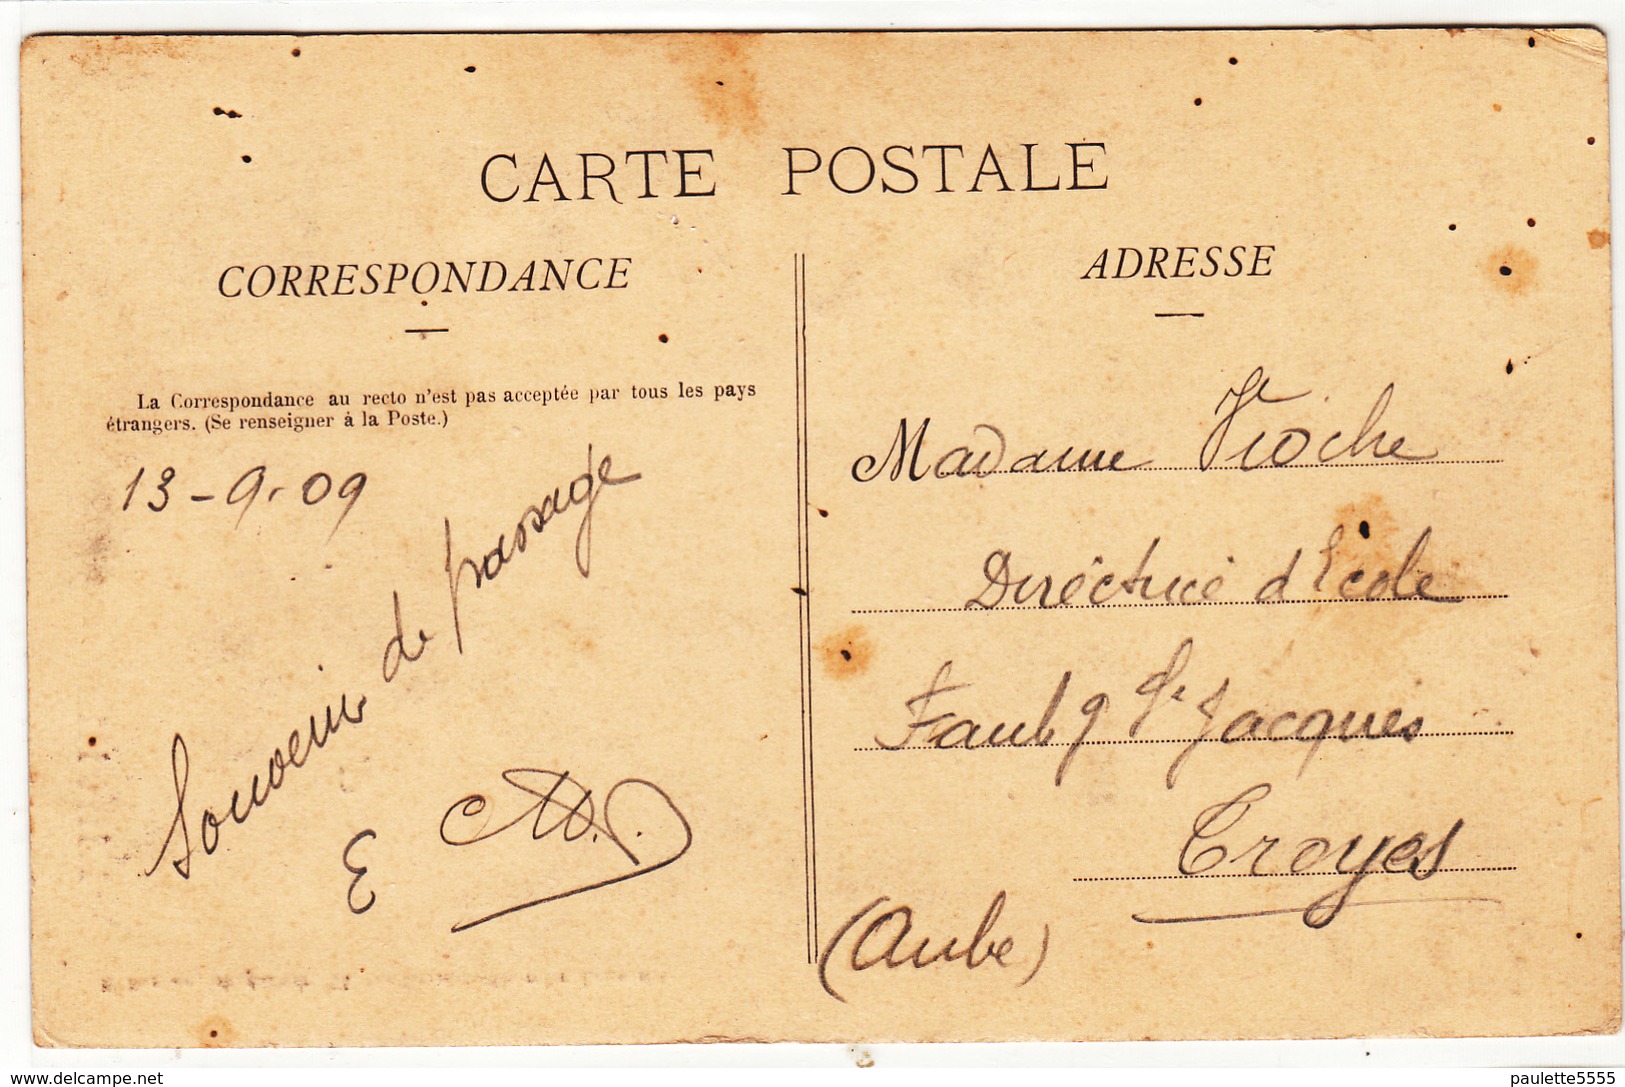 CARTE POSTALE
CORRESPONDANCE
La Correspondance au recto n'est pas acceptée par tous les pays
étrangers. (Se renseigner à la Poste.)
13-9-09
Souvenir de passage
E
ADRESSE
Madame
Directrice d'Ecole
Faubg St Jacques
Troyes
(Aube)
delcampe.net
paulette5555